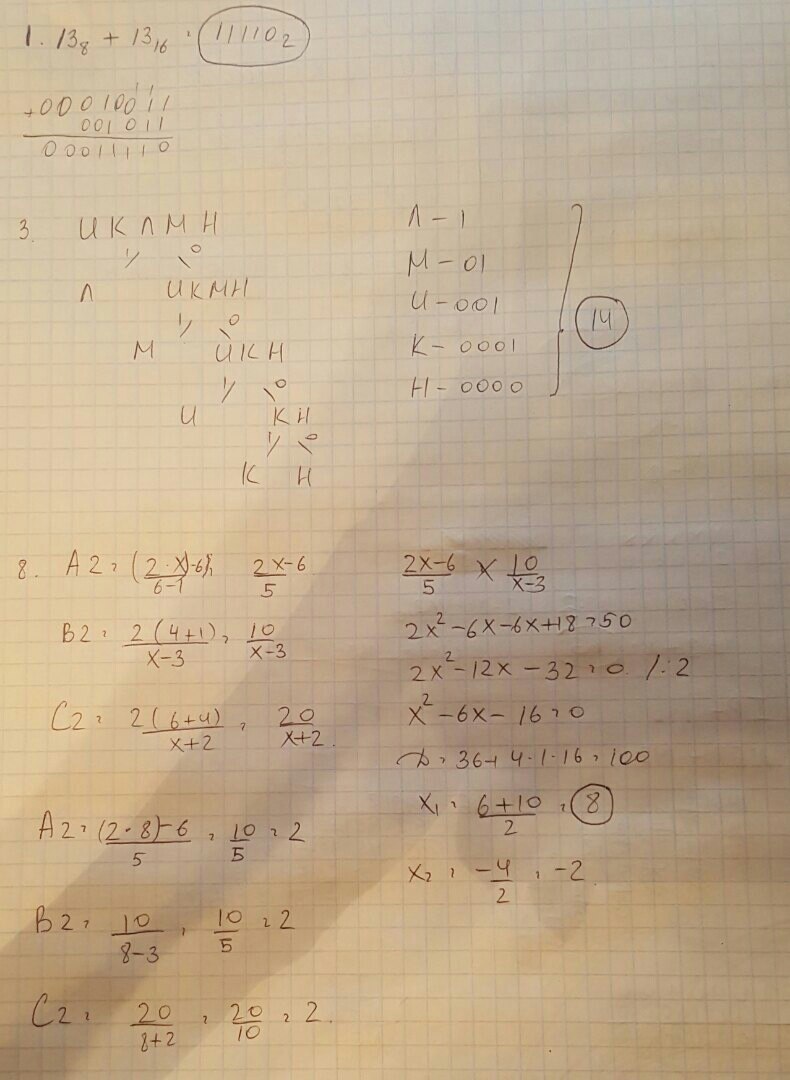 1. 13₈ + 13₁₆ = 11110₂
11
+00010011
001011
00011110
3. И К Л М Н
1/ \0
Л И К М Н
1/ \0
М И К Н
1/ \0
И К Н
1/ \0
К Н
Л - 1
М - 01
И - 001
К - 0001
Н - 0000
14
8. A2 = (2·x)-6)/(6-1) = (2x-6)/5
B2 = 2(4+1)/(x-3) = 10/(x-3)
C2 = 2(6+4)/(x+2) = 20/(x+2).
A2 = (2·8)-6/5 = 10/5 = 2
B2 = 10/(8-3) = 10/5 = 2
C2 = 20/(8+2) = 20/10 = 2.
(2x-6)/5 × 10/(x-3)
2x² - 6x - 6x + 18 = 50
2x² - 12x - 32 = 0 /:2
x² - 6x - 16 = 0
D = 36 + 4·1·16 = 100
x₁ = (6+10)/2 = 8
x₂ = -4/2 = -2.